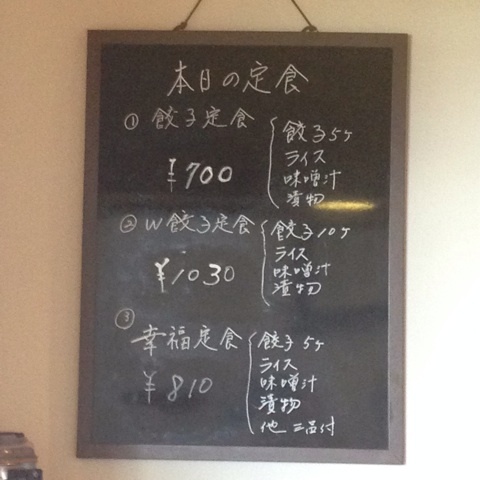 本日の定食
① 餃子定食
¥700
餃子5ヶ
ライス
味噌汁
漬物
② W餃子定食
¥1030
餃子10ヶ
ライス
味噌汁
漬物
③
幸福定食
¥810
餃子5ヶ
ライス
味噌汁
漬物
他 二品付